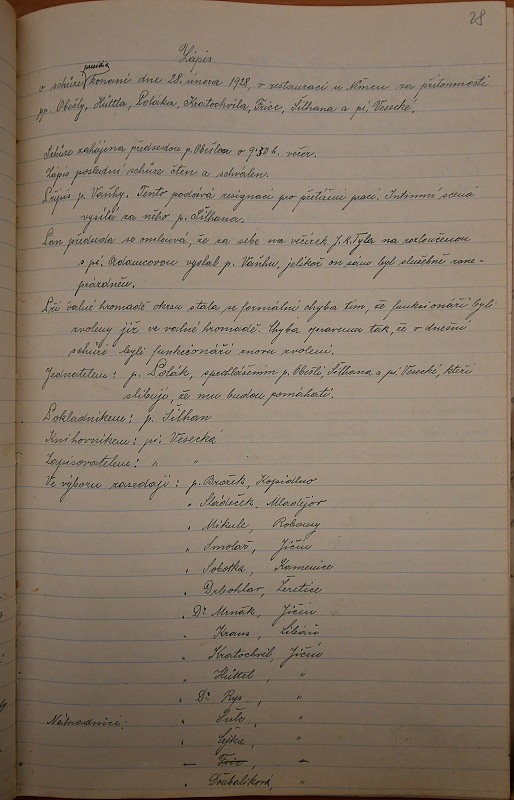 28
Zápis
presidia
o schůzi konané dne 28. února 1928, v restauraci u Němcu za přítomnosti
pp. Obešly, Hüttla, Poláka, Kratochvíla, Frice, Šilhana a pí. Vesecké.
Schůze zahájena předsedou p. Obešlou o 9·30 h. večer.
Zápis poslední schůze čten a schválen.
Přípis p. Vaňhy. Tento podává resignaci pro přetížení prací. Intimní scena
vysílá za něho p. Šilhana.
Pan předseda se omlouvá, že za sebe na večírek J. K. Tyla na rozloučenou
s pí. Adamcovou vyslal p. Vaňhu, jelikož on sám byl služebně zane-
prázdněn.
Při valné hromadě okrsu stala se formální chyba tím, že funkcionáři byli
zvoleny již ve valné hromadě. Chyba opravena tak, že v dnešní
schůzi byli funkcionáři znovu zvoleni.
Jednatelem: p. Polák, s p. Obešlí, Šilhana a pí. Vesecké, kteří
slibují, že mu budou pomáhati.
Pokladníkem: p. Šilhan
Knihovníkem: pí. Vesecká
Zapisovatelem: " "
Ve výboru zasedají: p. Brožek, Kopidlno
" Sládeček, Mladějov
" Mikule, Robousy
" Smolař, Jičín
" Sobotka, Kamenice
" Drbohlav, Žeretice
" Dr Mrnák, Jičín
" Kraus, Libáň
" Kratochvíl, Jičín
" Hüttel, "
" Dr Rys, "
Náhradníci: " Šulc, "
" Cejka, "
" Fric, "
" Doubalíková, "